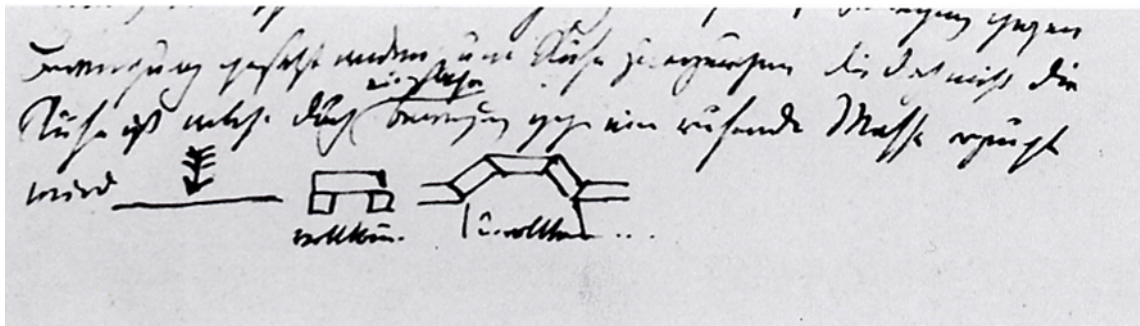 Bewegung gegen
Bewegung gesetzt werden um Ruhe zu erzeugen die doch nicht die
einfache
Ruhe ist welche durch Bewegung gegen eine ruhende Masse erzeugt
wird
vollkom. unvollkom ....